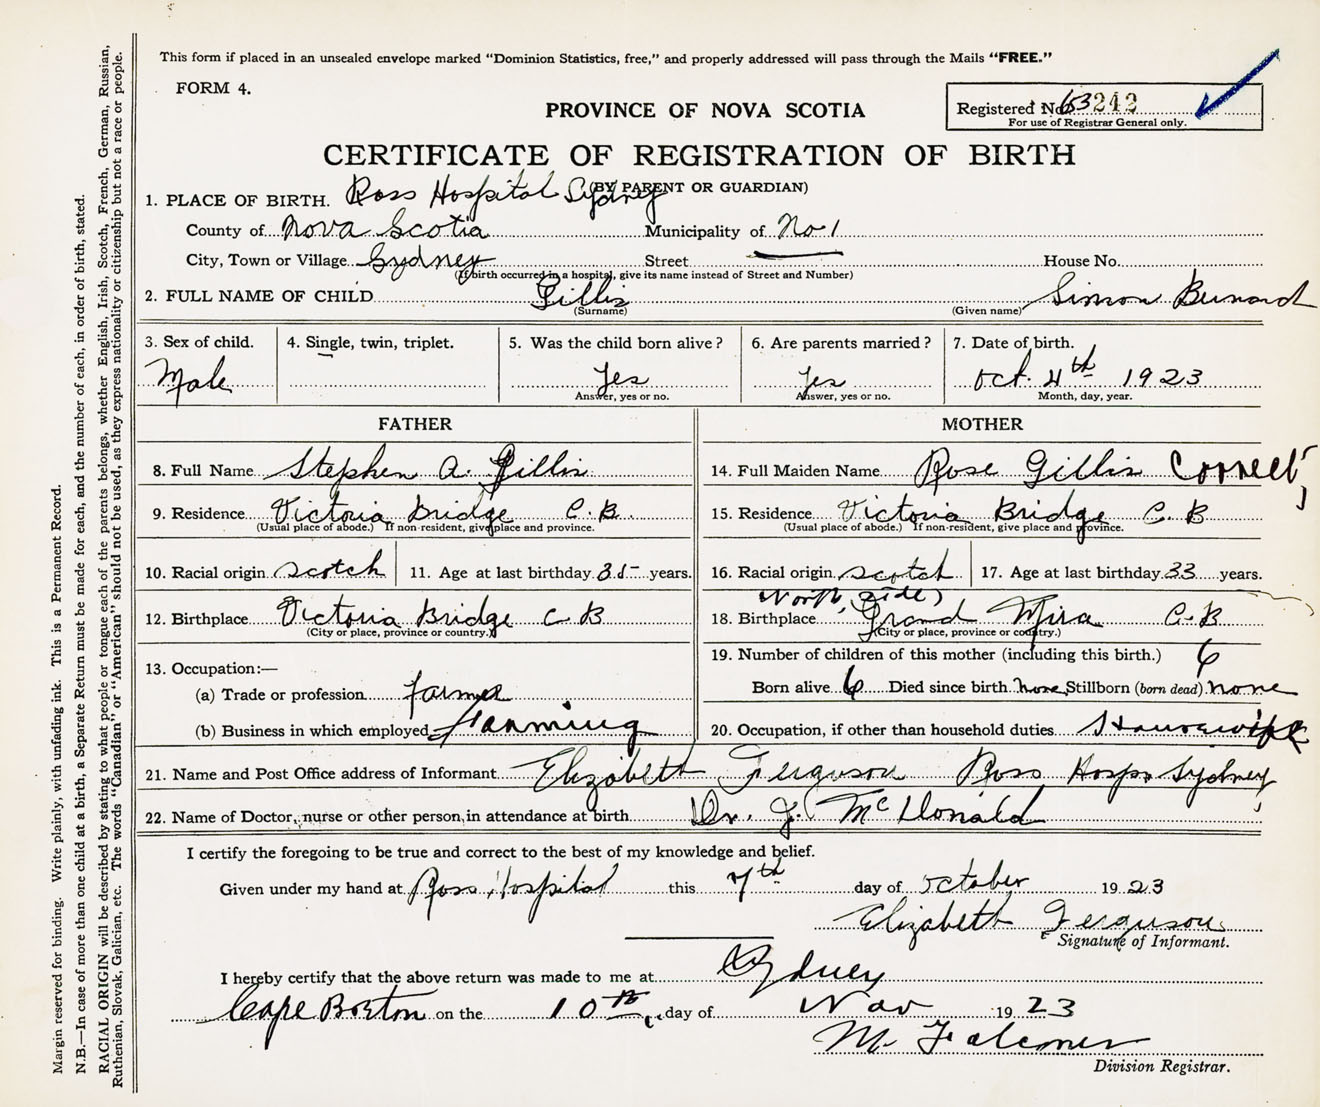 This form if placed in an unsealed envelope marked "Dominion Statistics, free," and properly addressed will pass through the Mails "FREE."
FORM 4.
PROVINCE OF NOVA SCOTIA
Registered No. 63242
For use of Registrar General only.
CERTIFICATE OF REGISTRATION OF BIRTH
(BY PARENT OR GUARDIAN)
1. PLACE OF BIRTH. Ross Hospital Sydney
County of Nova Scotia Municipality of No 1
City, Town or Village Sydney Street House No.
(If birth occurred in a hospital, give its name instead of Street and Number)
2. FULL NAME OF CHILD Gillis Simon Bernard
(Surname) (Given name)
3. Sex of child. 4. Single, twin, triplet. 5. Was the child born alive? 6. Are parents married? 7. Date of birth.
Male Yes Yes Oct. 4th 1923
Answer, yes or no. Answer, yes or no. Month, day, year.
FATHER MOTHER
8. Full Name Stephen A. Gillis 14. Full Maiden Name Rose Gillis Correct
9. Residence Victoria Bridge C. B. 15. Residence Victoria Bridge C. B
(Usual place of abode.) If non-resident, give place and province. (Usual place of abode.) If non-resident, give place and province.
10. Racial origin Scotch 11. Age at last birthday 35 years. 16. Racial origin Scotch 17. Age at last birthday 33 years.
North Side)
12. Birthplace Victoria Bridge C B 18. Birthplace Grand Mira C. B
(City or place, province or country.) (City or place, province or country.)
13. Occupation:— 19. Number of children of this mother (including this birth.) 6
(a) Trade or profession farmer Born alive 6 Died since birth none Stillborn (born dead) none
(b) Business in which employed Farming 20. Occupation, if other than household duties Housewife
21. Name and Post Office address of Informant Elizabeth Ferguson Ross Hosp. Sydney
22. Name of Doctor, nurse or other person, in attendance at birth Dr. J. McDonald
I certify the foregoing to be true and correct to the best of my knowledge and belief.
Given under my hand at Ross Hospital this 7th day of October 1923
Elizabeth Ferguson
Signature of Informant.
I hereby certify that the above return was made to me at Sydney
Cape Breton on the 10th day of Nov 1923
M. Falconer
Division Registrar.
Margin reserved for binding. Write plainly, with unfading ink. This is a Permanent Record.
N.B.—In case of more than one child at a birth, a Separate Return must be made for each, and the number of each, in order of birth, stated.
RACIAL ORIGIN will be described by stating to what people or tongue each of the parents belongs, whether English, Irish, Scotch, French, German, Russian,
Ruthenian, Slovak, Galician, etc. The words "Canadian" or "American" should not be used, as they express nationality or citizenship but not a race or people.